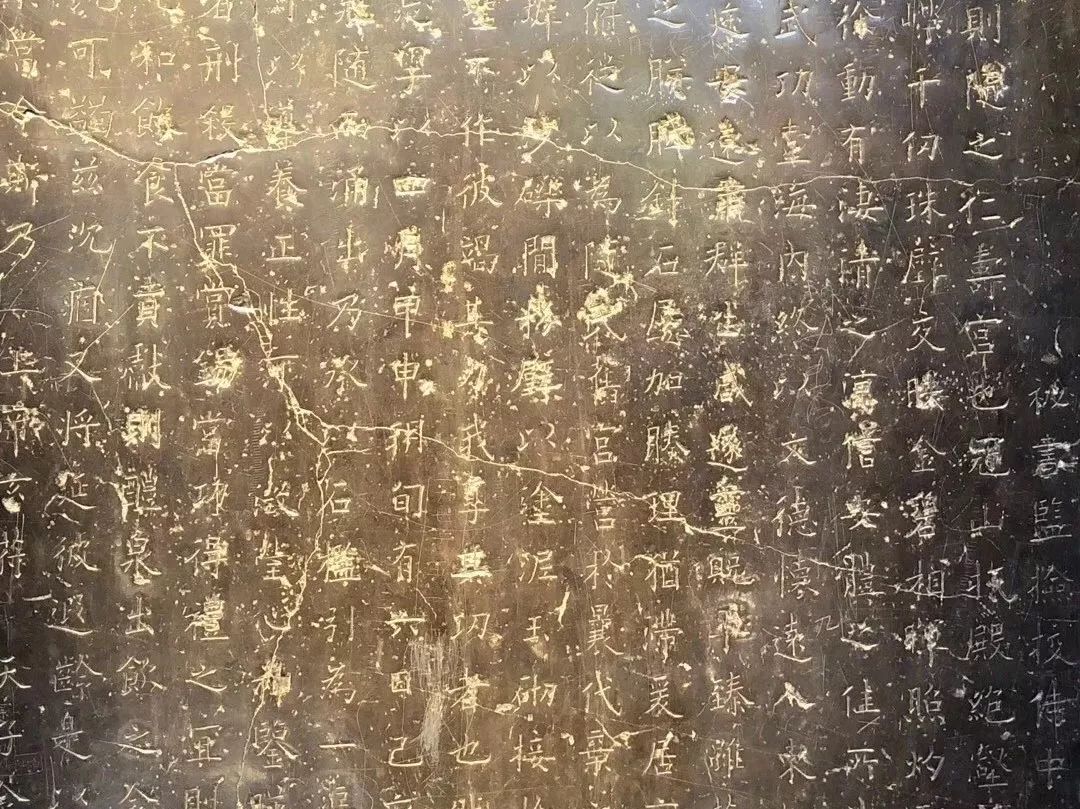 秘書監檢校侍中
則隨之仁壽宮也冠山抗殿絕壑
竦千仞珠璧交映金碧相暉照灼
徐動有淒清之涼信安體之佳所
武功壹海內終以文德懷遠人東
迩安遠肅群生咸遂靈貺畢臻雖
之胼胝針石屢加腠理猶滯爰居
俯從以為隨氏舊宮營於曩代棄
墀以沙礫間粉壁以塗泥玉砌接
聖不作彼竭其力我享其功者也
粵以四月甲申朔旬有六日己
隨而涌出乃承以石檻引為一
以導養正性可以澂瑩心神鑒
刑殺當罪賞錫當功得禮之宜則
和飲食不貢獻則醴泉出飲之令
可蠲茲沉痼又將延彼遐齡是以
當今斯乃上帝玄符天子令